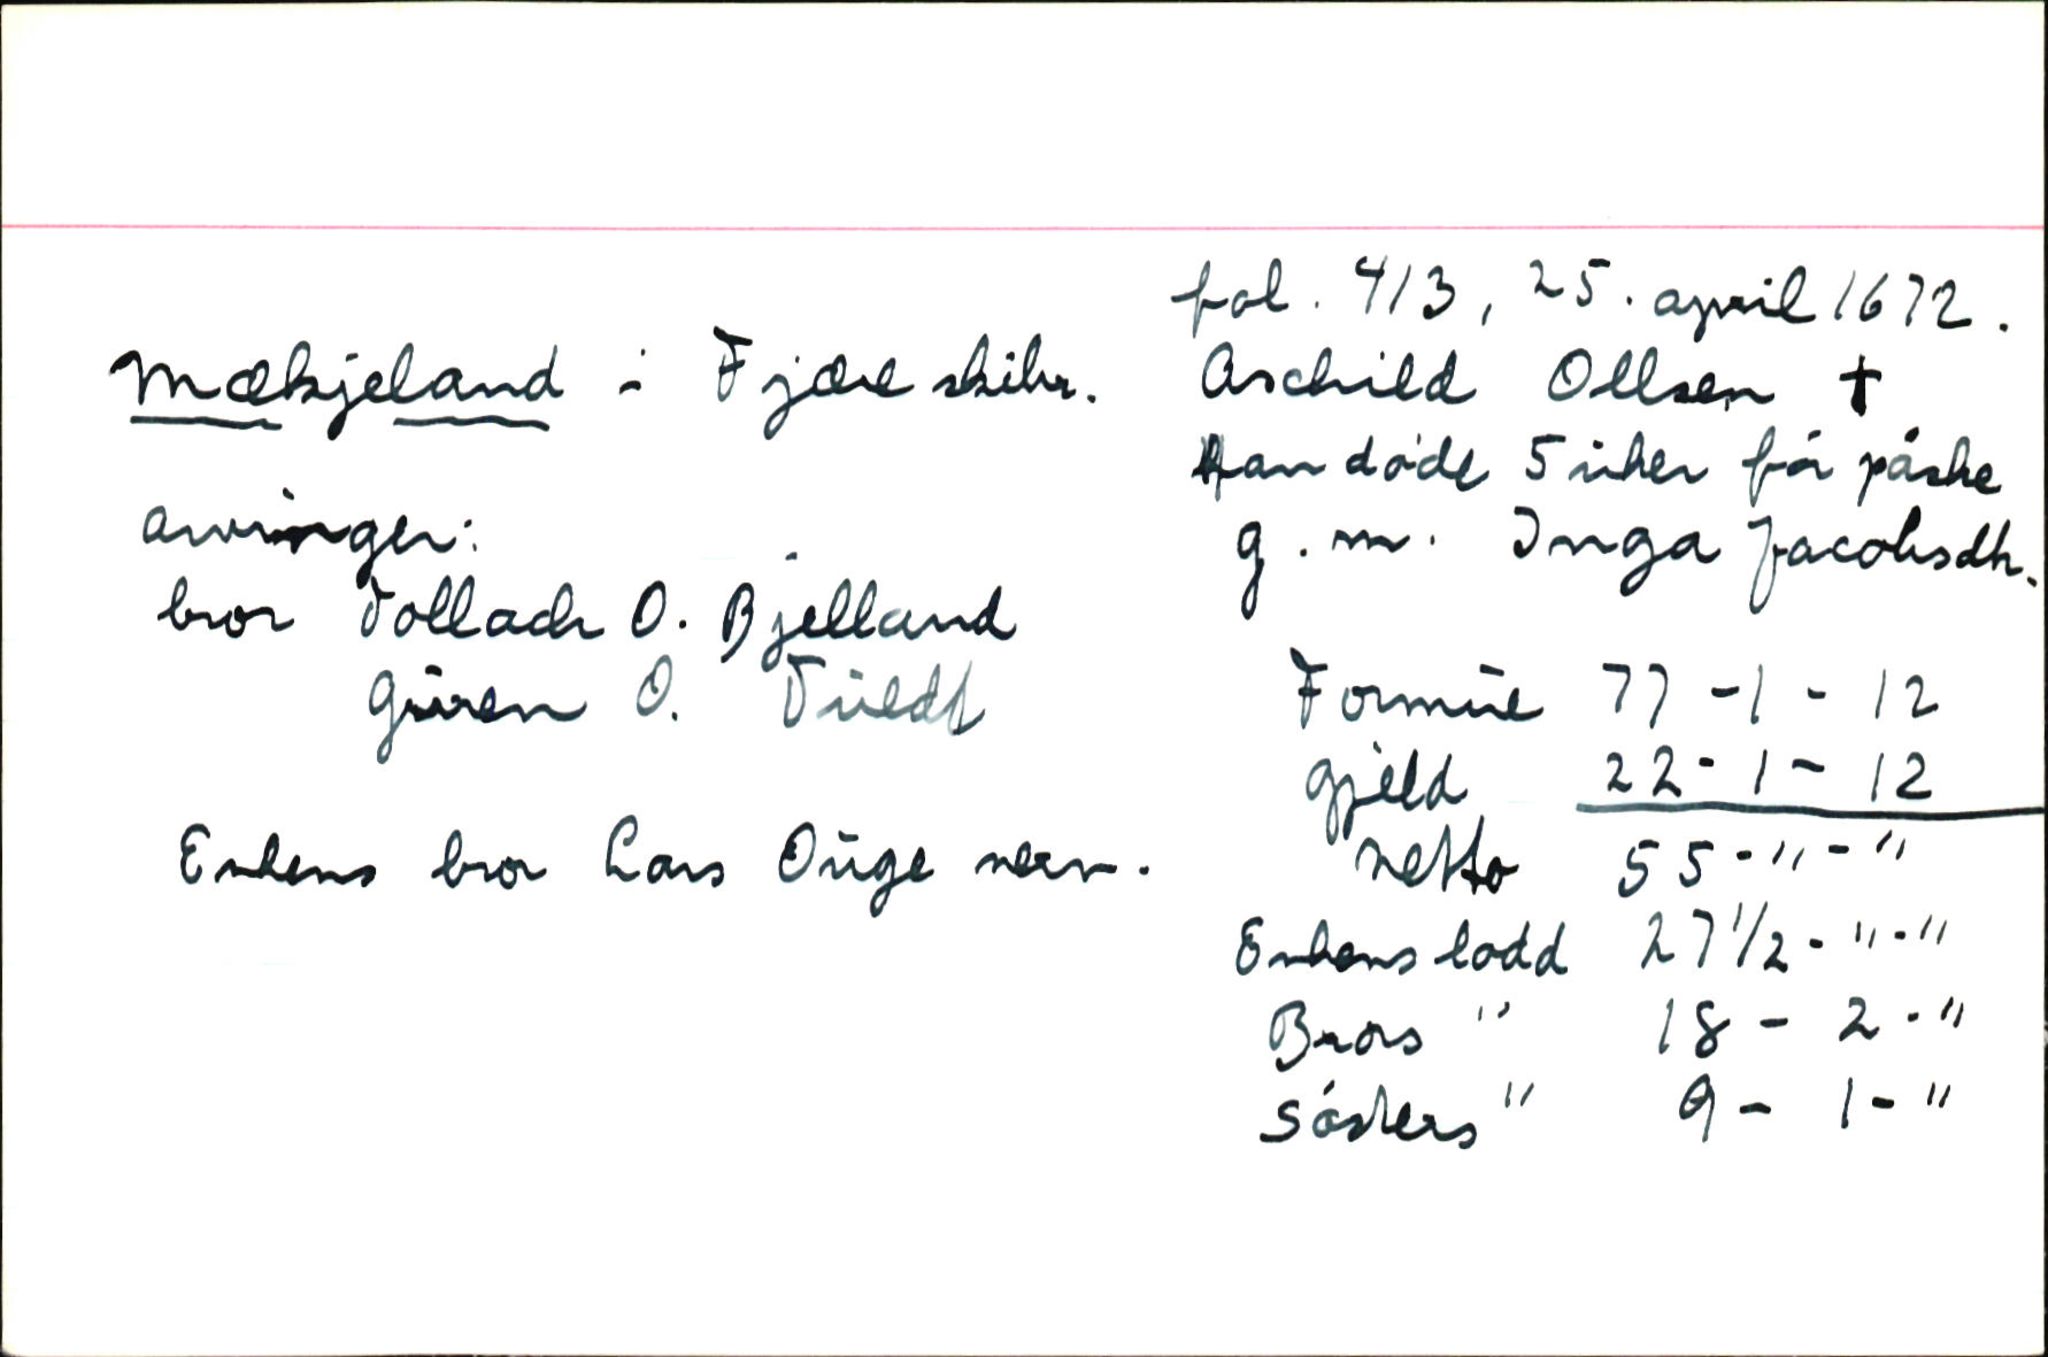 fol. 413, 25. april 1672.
Mækjeland i Fjære skibr.
Aschild Ollsen †
Han døde 5 uker før påske
g. m. Inga Jacobsdtr.
arvinger:
bror Tollach O. Bjelland
Guren O. Tuedt
Enkens bror Lars Ouge verv.
Formue 77 - 1 - 12
gjeld 22 - 1 - 12
netto 55 - " - "
Enkens lodd 27 1/2 - " - "
Brors " 18 - 2 - "
Søsters " 9 - 1 - "